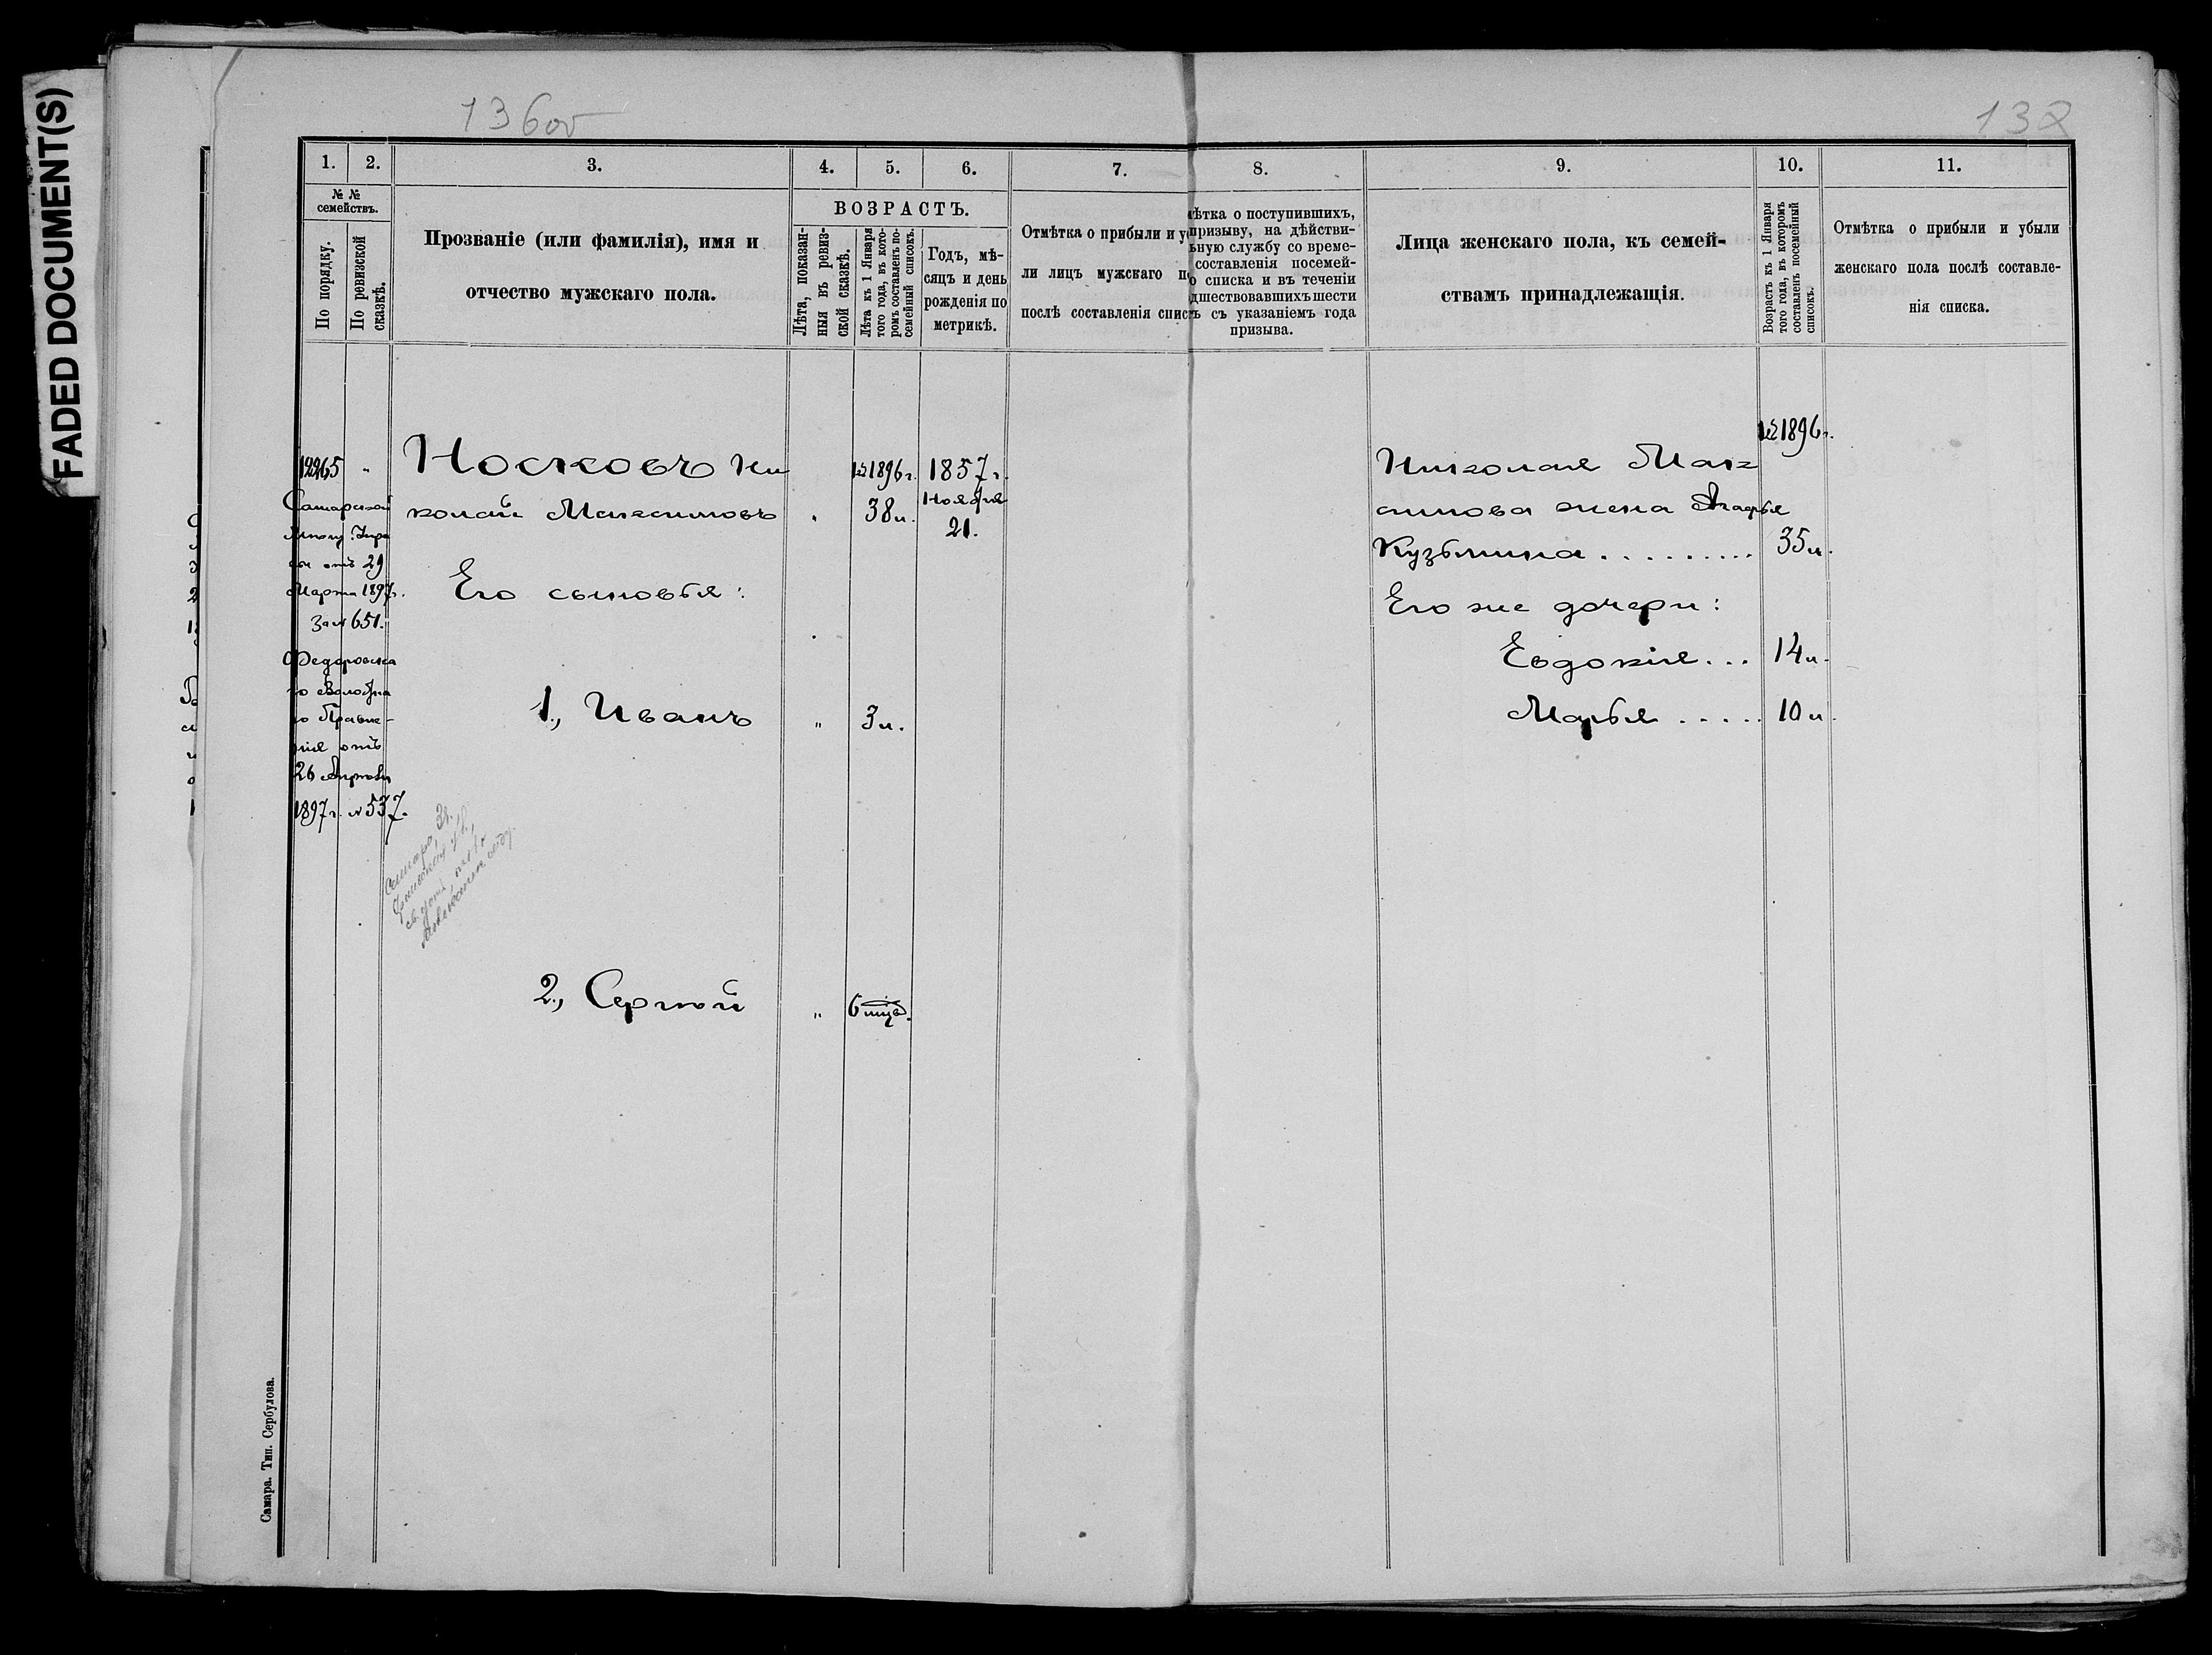 FADED DOCUMENT(S)
136об
132
1.
2.
3.
4.
5.
6.
7.
8.
9.
10.
11.
№ №
семействъ.
По порядку.
По ревизской
сказкѣ.
Прозваніе (или фамилія), имя и
отчество мужскаго пола.
ВОЗРАСТЪ.
Лѣта, показан-
ныя въ ревиз-
ской сказкѣ.
Лѣта къ 1 Января
того года, въ кото-
ромъ составленъ по-
семейный списокъ.
Годъ, мѣ-
сяцъ и день
рожденія по
метрикѣ.
Отмѣтка о прибыли и у
ли лицъ мужскаго п
послѣ составленія списк
ѣтка о поступившихъ,
призыву, на дѣйстви-
ьную службу со време-
составленія посемей-
о списка и въ теченіи
дшествовавшихъ шести
ъ съ указаніемъ года
призыва.
Лица женскаго пола, къ семей-
ствамъ принадлежащія.
Возрастъ къ 1 Января
того года, въ которомъ
составленъ посемейный
списокъ.
Отмѣтка о прибыли и убыли
женскаго пола послѣ составле-
нія списка.
12265 „ Носковъ Ни 1896 г. 1857 г.
колай Максимовъ „ 38 л. Ноября
21.
Самарской
отъ 29
Марта 1897 г.
за № 651.
Федоровска
го Волостна
го Правле-
нія отъ
26
1897 г. № 537.
Его сыновья:
1., Иванъ „ 3 л.
2., Сергѣй „ 6 мѣс.
1896 г.
Николая Мак=
симова жена Агафья
Кузьмина ......... 35 л.
Его же дочери:
Евдокія ... 14 л.
Марья ..... 10 л.
Самара. Тип. Сербулова.